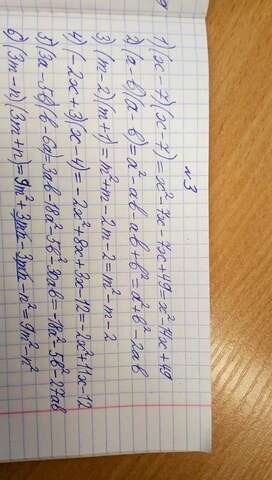 №3
1) (x-7)(x-7)=x²-7x-7x+49=x²-14x+49
2) (a-b)(a-b)=a²-ab-ab+b²=a²+b²-2ab
3) (m-2)(m+1)=m²+m-2m-2=m²-m-2
4) (-2x+3)(x-4)=-2x²+8x+3x-12=-2x²+11x-12
5) (3a-5b)(b-6a)=3ab-18a²-5b²-30ab=-18a²-5b²-27ab
6) (3m-n)(3m+n)=9m²+3mn-3mn-n²=9m²-n²